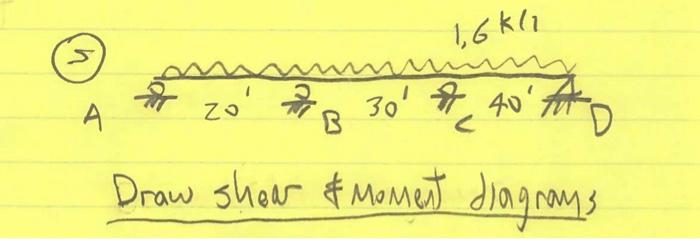 5
1.6 k/1
A 20' B 30' C 40' D
Draw shear & Moment diagrams